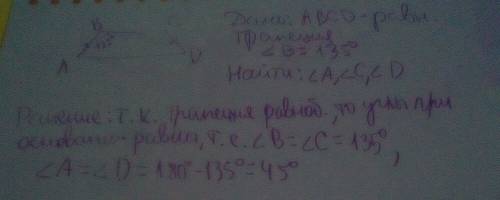 B
C
135°
A
D
Дано: ABCD-равн.
трапеция
∠B=135°
Найти: ∠A,∠C,∠D
Решение: т.к. трапеция равноб., то углы при
основании равны, т.е. ∠B=∠C=135°,
∠A=∠D=180°-135°=45°